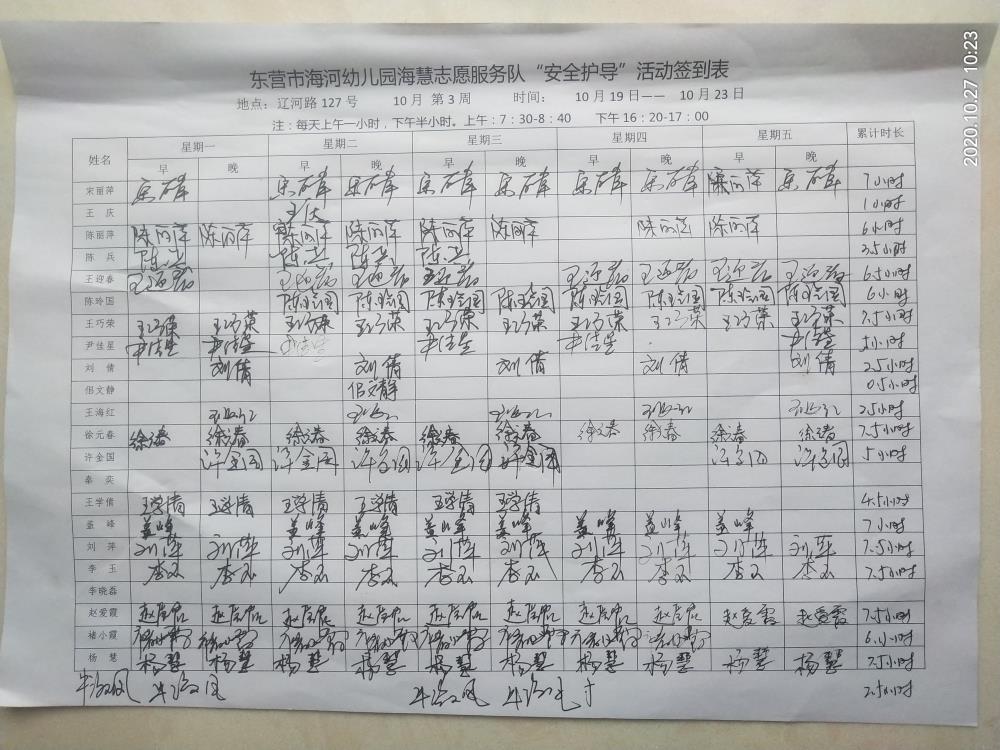 东营市海河幼儿园海慧志愿服务队“安全护导”活动签到表
地点：辽河路127号 10月 第3周 时间： 10月19日—— 10月23日
注：每天上午一小时，下午半小时。上午：7：30-8：40 下午16：20-17：00
姓名 星期一 星期二 星期三 星期四 星期五 累计时长
早 晚 早 晚 早 晚 早 晚 早 晚
宋丽萍 7小时
王庆 1小时
陈丽萍 陈丽萍 陈丽萍 陈丽萍 陈丽萍 陈丽萍 陈丽萍 陈丽萍 陈丽萍 6小时
陈兵 陈兵 陈兵 陈兵 陈兵 3.5小时
王迎春 王迎春 王迎春 王迎春 王迎春 王迎春 王迎春 王迎春 王迎春 6.5小时
陈玲国 陈玲国 陈玲国 陈玲国 陈玲国 陈玲国 陈玲国 陈玲国 陈玲国 6小时
王巧荣 王巧荣 王巧荣 王巧荣 王巧荣 王巧荣 王巧荣 王巧荣 王巧荣 王巧荣 王巧荣 7.5小时
尹佳星 尹佳星 尹佳星 尹佳星 尹佳星 尹佳星 尹佳星
刘倩 刘倩 刘倩 刘倩 刘倩 刘倩 2.5小时
佀文静 佀文静 0.5小时
王海红 王海红 王海红 王海红 王海红 王海红 2.5小时
徐元春 徐元春 徐元春 徐元春 徐元春 徐元春 徐元春 徐元春 徐元春 徐元春 徐元春 7.5小时
许金国 许金国 许金国 许金国 许金国 许金国 许金国 许金国 5小时
秦奕
王学倩 王学倩 王学倩 王学倩 王学倩 王学倩 王学倩 4.5小时
盖峰 盖峰 盖峰 盖峰 盖峰 盖峰 盖峰 盖峰 盖峰 盖峰 7小时
刘萍 刘萍 刘萍 刘萍 刘萍 刘萍 刘萍 刘萍 刘萍 刘萍 刘萍 7.5小时
李玉 李玉 李玉 李玉 李玉 李玉 李玉 李玉 李玉 李玉 李玉 7.5小时
李晓磊
赵爱霞 赵爱霞 赵爱霞 赵爱霞 赵爱霞 赵爱霞 赵爱霞 赵爱霞 赵爱霞 赵爱霞 赵爱霞 7.5小时
褚小霞
杨慧 杨慧 杨慧 杨慧 杨慧 杨慧 杨慧 杨慧 杨慧 杨慧 杨慧 7.5小时
2020.10.27 10:23